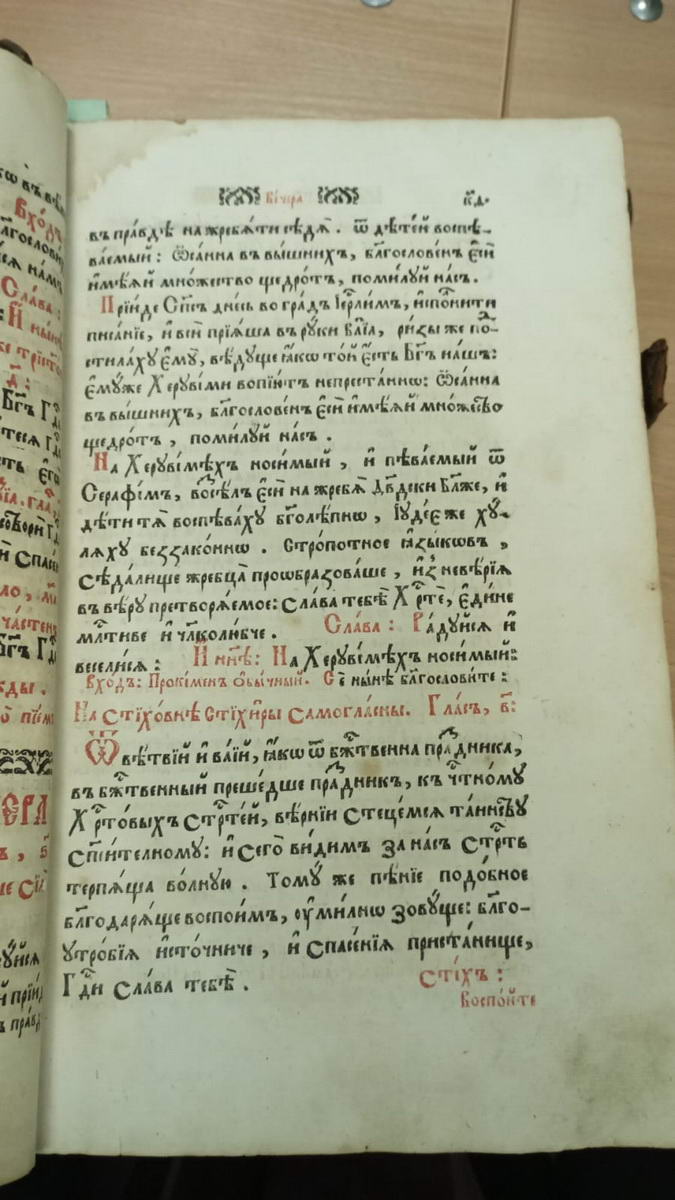 Ве́чера к҃д.
въ пра́вдѣ на жребѧ́ти сѣдѧ̀. ѿ дѣте́й воспѣ-
ва́емый: Ѡ҆са́нна въ вы́шнихъ, бл҃гослове́нъ є҆сѝ
и҆мѣ́ѧй мно́жество щедро́тъ, поми́лꙋй на́съ.
Прїи́де Сп҃съ дне́сь во гра́дъ І҆ер҇ли́мъ, и҆спо́лнити
писа́нїе, и҆ всѝ прїѧ́ша въ рꙋ́ки ва́їа, ри́зы же по-
стила́хꙋ є҆мꙋ̀, вѣ́дꙋще ꙗ҆́кѡ то́й є҆́сть Бг҃ъ на́шъ:
є҆мꙋ́же Херꙋві́ми вопїю́тъ непреста́ннѡ: Ѡ҆са́нна
въ вы́шнихъ, бл҃гослове́нъ є҆сѝ и҆мѣ́ѧй мно́жество
щедро́тъ, поми́лꙋй на́съ.
На Херꙋві́мѣхъ носи́мый, и҆ пѣва́емый ѿ
Серафі́мъ, возсѣ́лъ є҆сѝ на жребѧ̀ Дв҃дски Бл҃же, и҆
дѣ́ти тѧ̀ воспѣва́хꙋ бг҃олѣ́пнѡ, І҆ꙋде́є же хꙋ-
лѧ́хꙋ беззако́ннѡ. Стро́потное ꙗ҆зы́кѡвъ,
сѣда́лище жребца̀ проѡбразова́ше, и҆з̾ невѣ́рїѧ
въ вѣ́рꙋ претворѧ́емое: сла́ва тебѣ̀ Хр҇тѐ, є҆ди́не
млⷭ҇тиве и҆ чл҃колю́бче. Сла́ва: Ра́дꙋйсѧ и҆
весели́сѧ: И҆ нн҃ѣ: На Херꙋві́мѣхъ носи́мый:
вхо́дъ: Проки́менъ ѻ҆бы́чный. Сѐ ны́нѣ бл҃гослови́те:
На стїхо́внѣ стїхи́ры самогла́сны. Гла́съ, в҃:
Ѿ вѣ́твїй и҆ ва́їй, ꙗ҆́кѡ ѿ бж҇твенна пра́здника,
въ бж҇твенный преше́дше пра́здникъ, къ чⷭ҇тномꙋ
Хр҇то́выхъ стр҇те́й, вѣ́рнїи стеце́мсѧ та́инствꙋ
сп҃си́телномꙋ: и҆ сего̀ ви́димъ за на́съ стр҇ть
терпѧ́ща во́лнꙋю. Томꙋ́ же пѣ́нїе подо́бное
благодарѧ́ще воспои́мъ, ᲂу҆ми́льнѡ зовꙋ́ще: бл҃го-
ꙋтро́бїѧ и҆сто́чниче, и҆ спасе́нїѧ приста́нище,
Гдⷭ҇и сла́ва тебѣ̀. Сті́хъ:
Воспо́йте